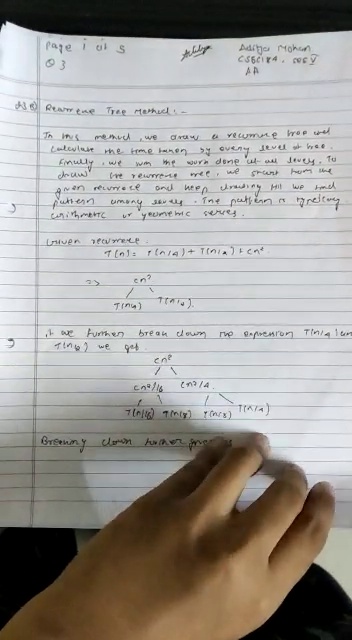 Page 1 of 5
Aditya Mohan
CSE
AA
Q 3
Recurrence Tree Method : -
In this method, we draw a recurrence tree and
calculate the time taken by every level of tree.
Finally, we sum the work done at all levels. To
draw the recurrence tree, we start from the
given recurrence and keep drawing till we find
pattern among levels. The pattern is typically
arithmetic or geometric series.
Given recurrence.
T(n) = T(n/4) + T(n/2) + cn²
=> cn²
T(n/4) T(n/2).
if we further break down the expression T(n/4) and
T(n/2) we get.
cn²
cn²/16 cn²/4.
T(n/16) T(n/8) T(n/8) T(n/4)
Breaking down further gives us